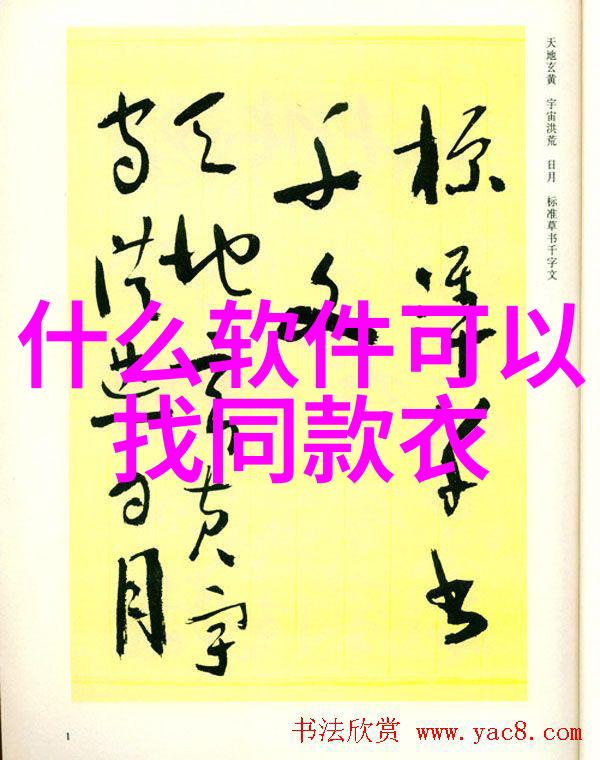 天地玄黄 宇宙洪荒 日月 标准草书千字文
标准草书
千文
天地玄黄宇
宙洪荒日月
什么软件可以
找同款衣
1
书法欣赏 www.yac8.com